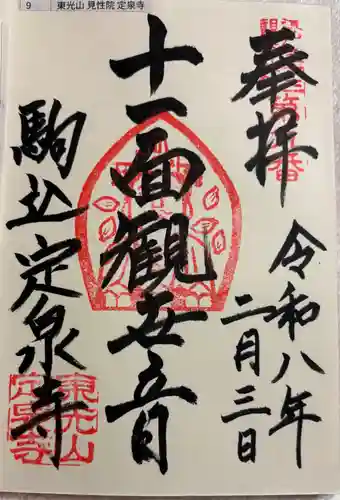 9 東光山 見性院 定泉寺
奉拝
令和八年
二月三日
十一面観世音
駒込定泉寺
東光山
定泉寺